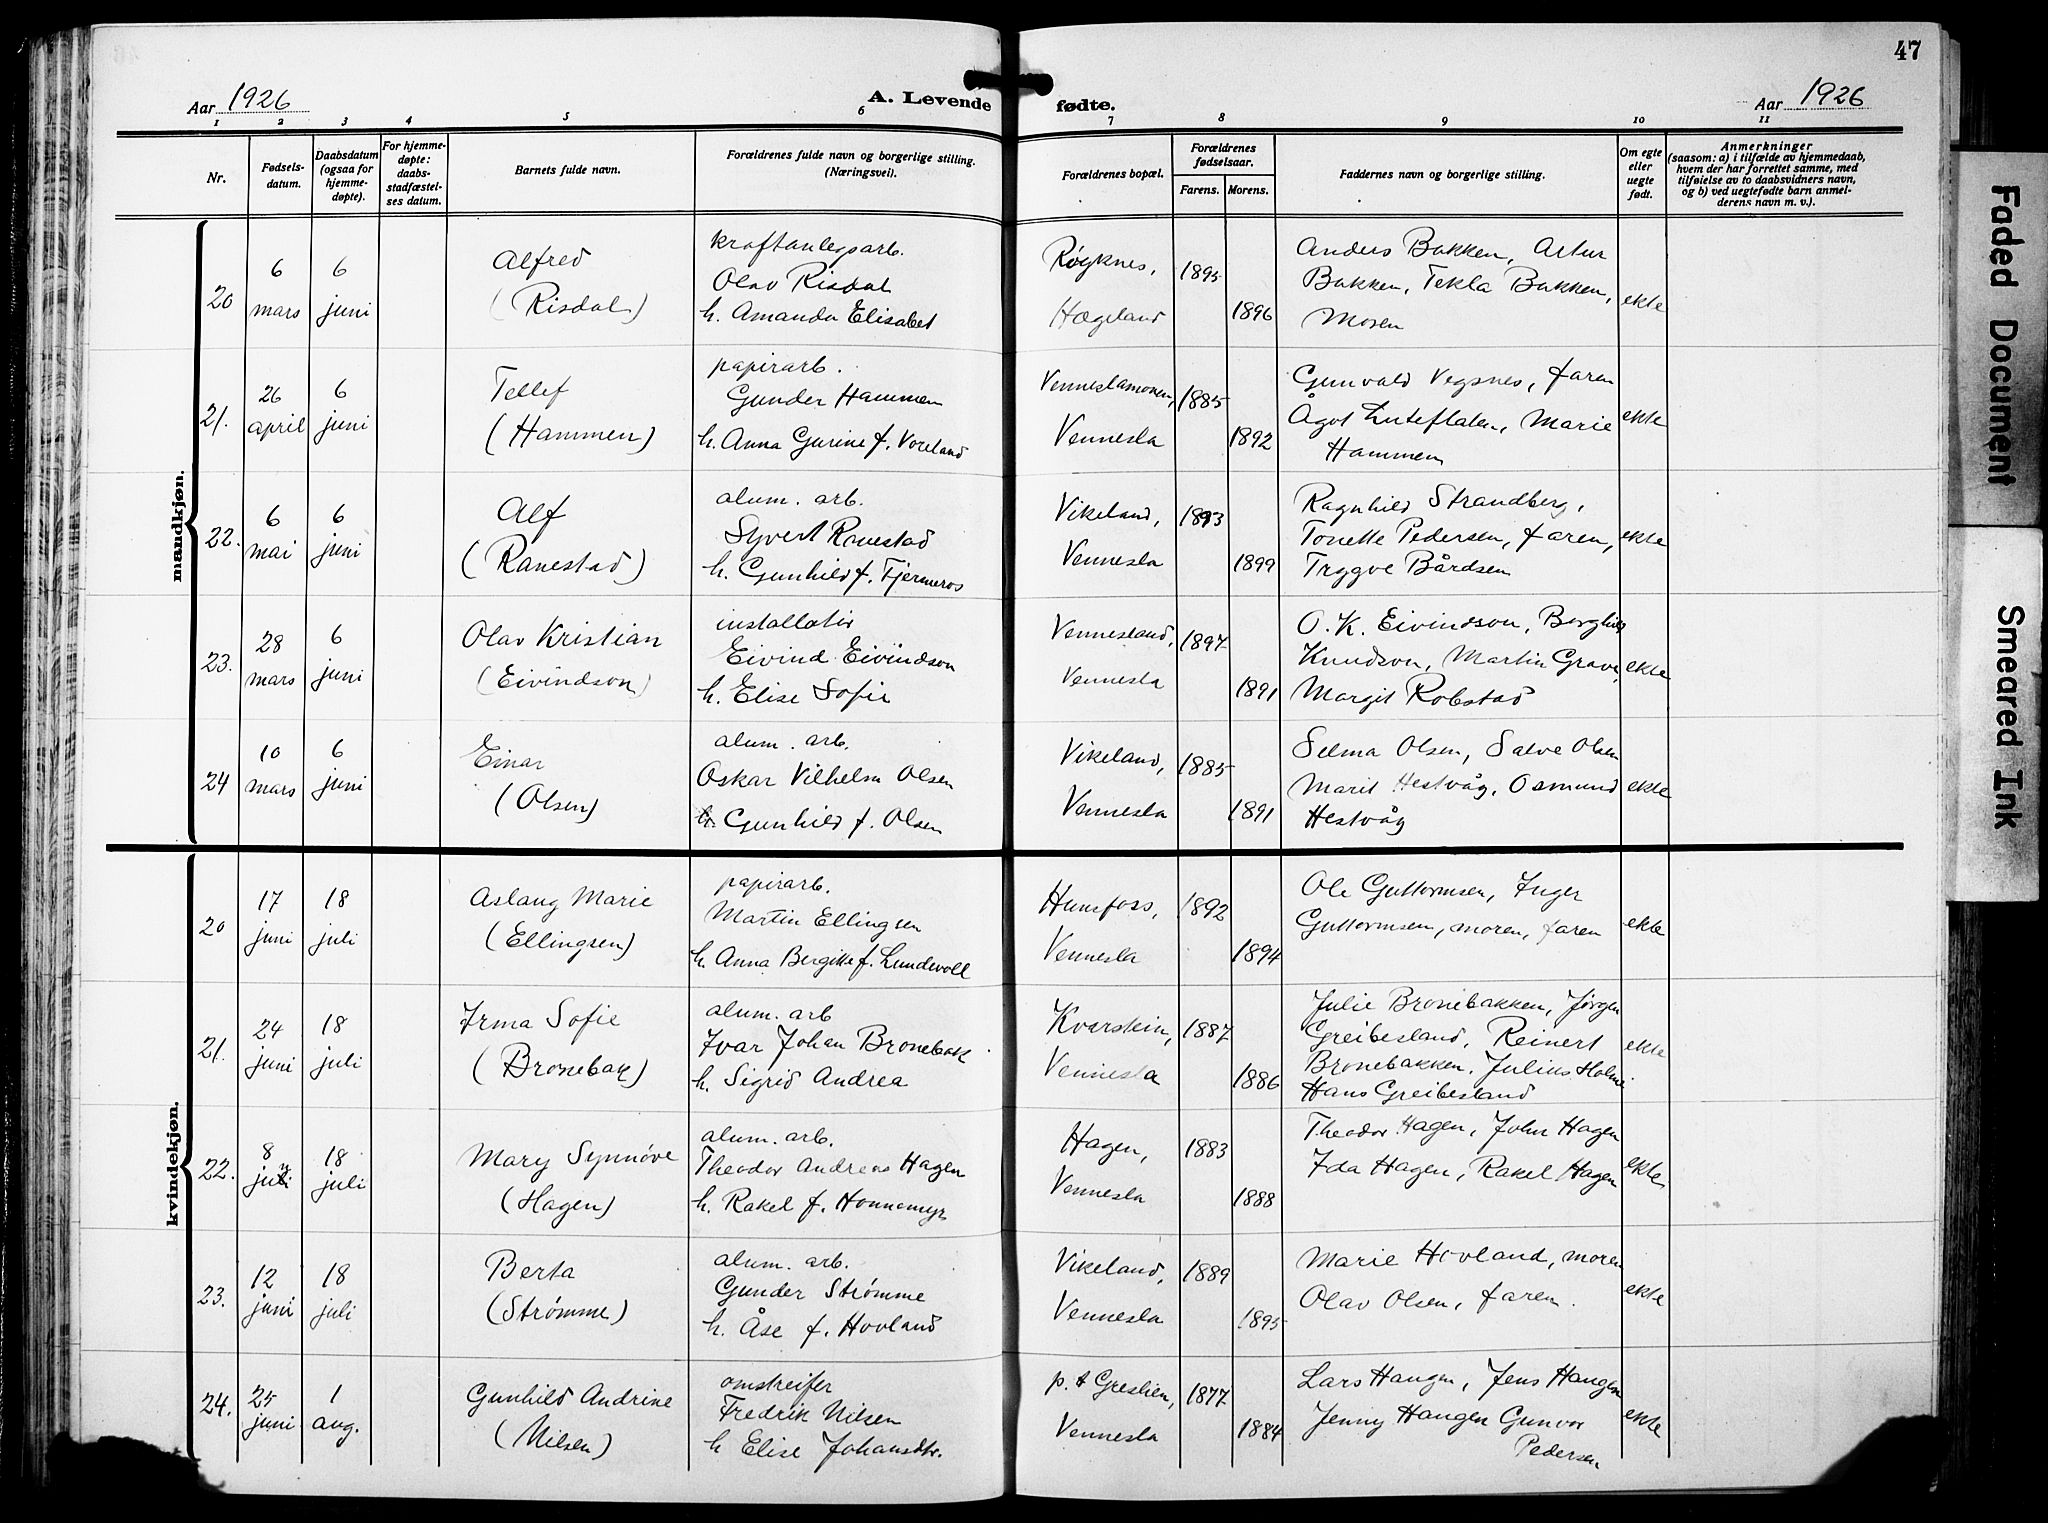 47
Aar 1926 A. Levende fødte. Aar 1926
1 2 3 4 5 6 7 8 9 10 11
Nr.
Fødsels-
datum.
Daabsdatum
(ogsaa for
hjemme-
døpte).
For hjemme-
døpte:
daabs-
stadfæstel-
ses datum.
Barnets fulde navn.
Forældrenes fulde navn og borgerlige stilling.
(Næringsvei).
Forældrenes bopæl.
Forældrenes
fødselsaar.
Farens. Morens.
Faddernes navn og borgerlige stilling.
Om egte
eller
uegte
født.
Anmerkninger
(saasom: a) i tilfælde av hjemmedaab,
hvem der har forrettet samme, med
tilføielse av to daabsvidners navn,
og b) ved uegtefødte barn anmel-
derens navn m. v.).
mandkjøn.
20
6
mars
6
juni
Alfred
(Risdal)
kraftanlegsarb.
Olav Risdal
h. Amanda Elisabet
Røyknes,
Hægeland
1895
1896
Anders Bakken, Artur
Bakken, Tekla Bakken,
Moren
ekte
21.
26
april
6
juni
Tellef
(Hammen)
papirarb.
Gunder Hammen
h. Anna Gurine f. Voreland
Venneslamonen,
Vennesla
1885
1892
Gunvald Vegsnes, faren
Ågot Luteflalen, Marie
Hammen
ekte
22.
6
mai
6
juni
Alf
(Ranestad)
alum. arb.
Syvert Ranestad
h. Gunhild f. Fjermeros
Vikeland,
Vennesla
1893
1899
Ragnhild Strandberg,
Tonette Pedersen, faren,
Trygve Bårdsen
ekte
23.
28
mars
6
juni
Olav Kristian
(Eivindson)
installatör
Eivind Eivindson
h. Elise Sofie
Vennesland,
Vennesla
1897
1891
O. K. Eivindson, Borghild
Knudson, Martin Grave,
Margit Robstad
ekte
24
10
mars
6
juni
Einar
(Olsen)
alum. arb.
Oskar Vilhelm Olsen
h. Gunhild f. Olsen
Vikeland,
Vennesla
1885
1891
Selma Olsen, Salve Olsen
Marit Hestvåg, Osmund
Hestvåg
ekte
kvindekjøn.
20
17
juni
18
juli
Aslaug Marie
(Ellingsen)
papirarb.
Martin Ellingsen
h. Anna Bergitte f. Lundevoll
Hunsfoss,
Vennesla
1892
1894
Ole Guttormsen, Inger
Guttormsen, moren, faren
ekte
21.
24
juni
18
juli
Irma Sofie
(Bronebak)
alum. arb
Ivar Johan Bronebak
h. Sigrid Andrea
Kvarstein,
Vennesla
1887
1886
Julie Bronebakken, Jørgen
Greibesland, Reinert
Bronebakken, Julius Holme
Hans Greibesland
ekte
22.
8
juni
18
juli
Mary Synnöve
(Hagen)
alum. arb.
Theodor Andreas Hagen
h. Rakel f. Honnemyr
Hagen,
Vennesla
1883
1888
Theodor Hagen, John Hagen
Ida Hagen, Rakel Hagen
ekte
23.
12
juni
18
juli
Berta
(Strømme)
alum. arb.
Gunder Strømme
h. Åse f. Hovland
Vikeland,
Vennesla
1889
1895
Marie Hovland, moren
Olav Olsen, faren.
ekte
24.
25
juni
1
aug.
Gunhild Andrine
(Nilsen)
omstreifer
Fredrik Nilsen
h Elise Johansdtr.
p. t Greslien,
Vennesla
1877
1884
Lars Haugen, Jens Haugen
Jenny Haugen Gunvor
Pedersen
ekte
Faded Document
Smeared Ink